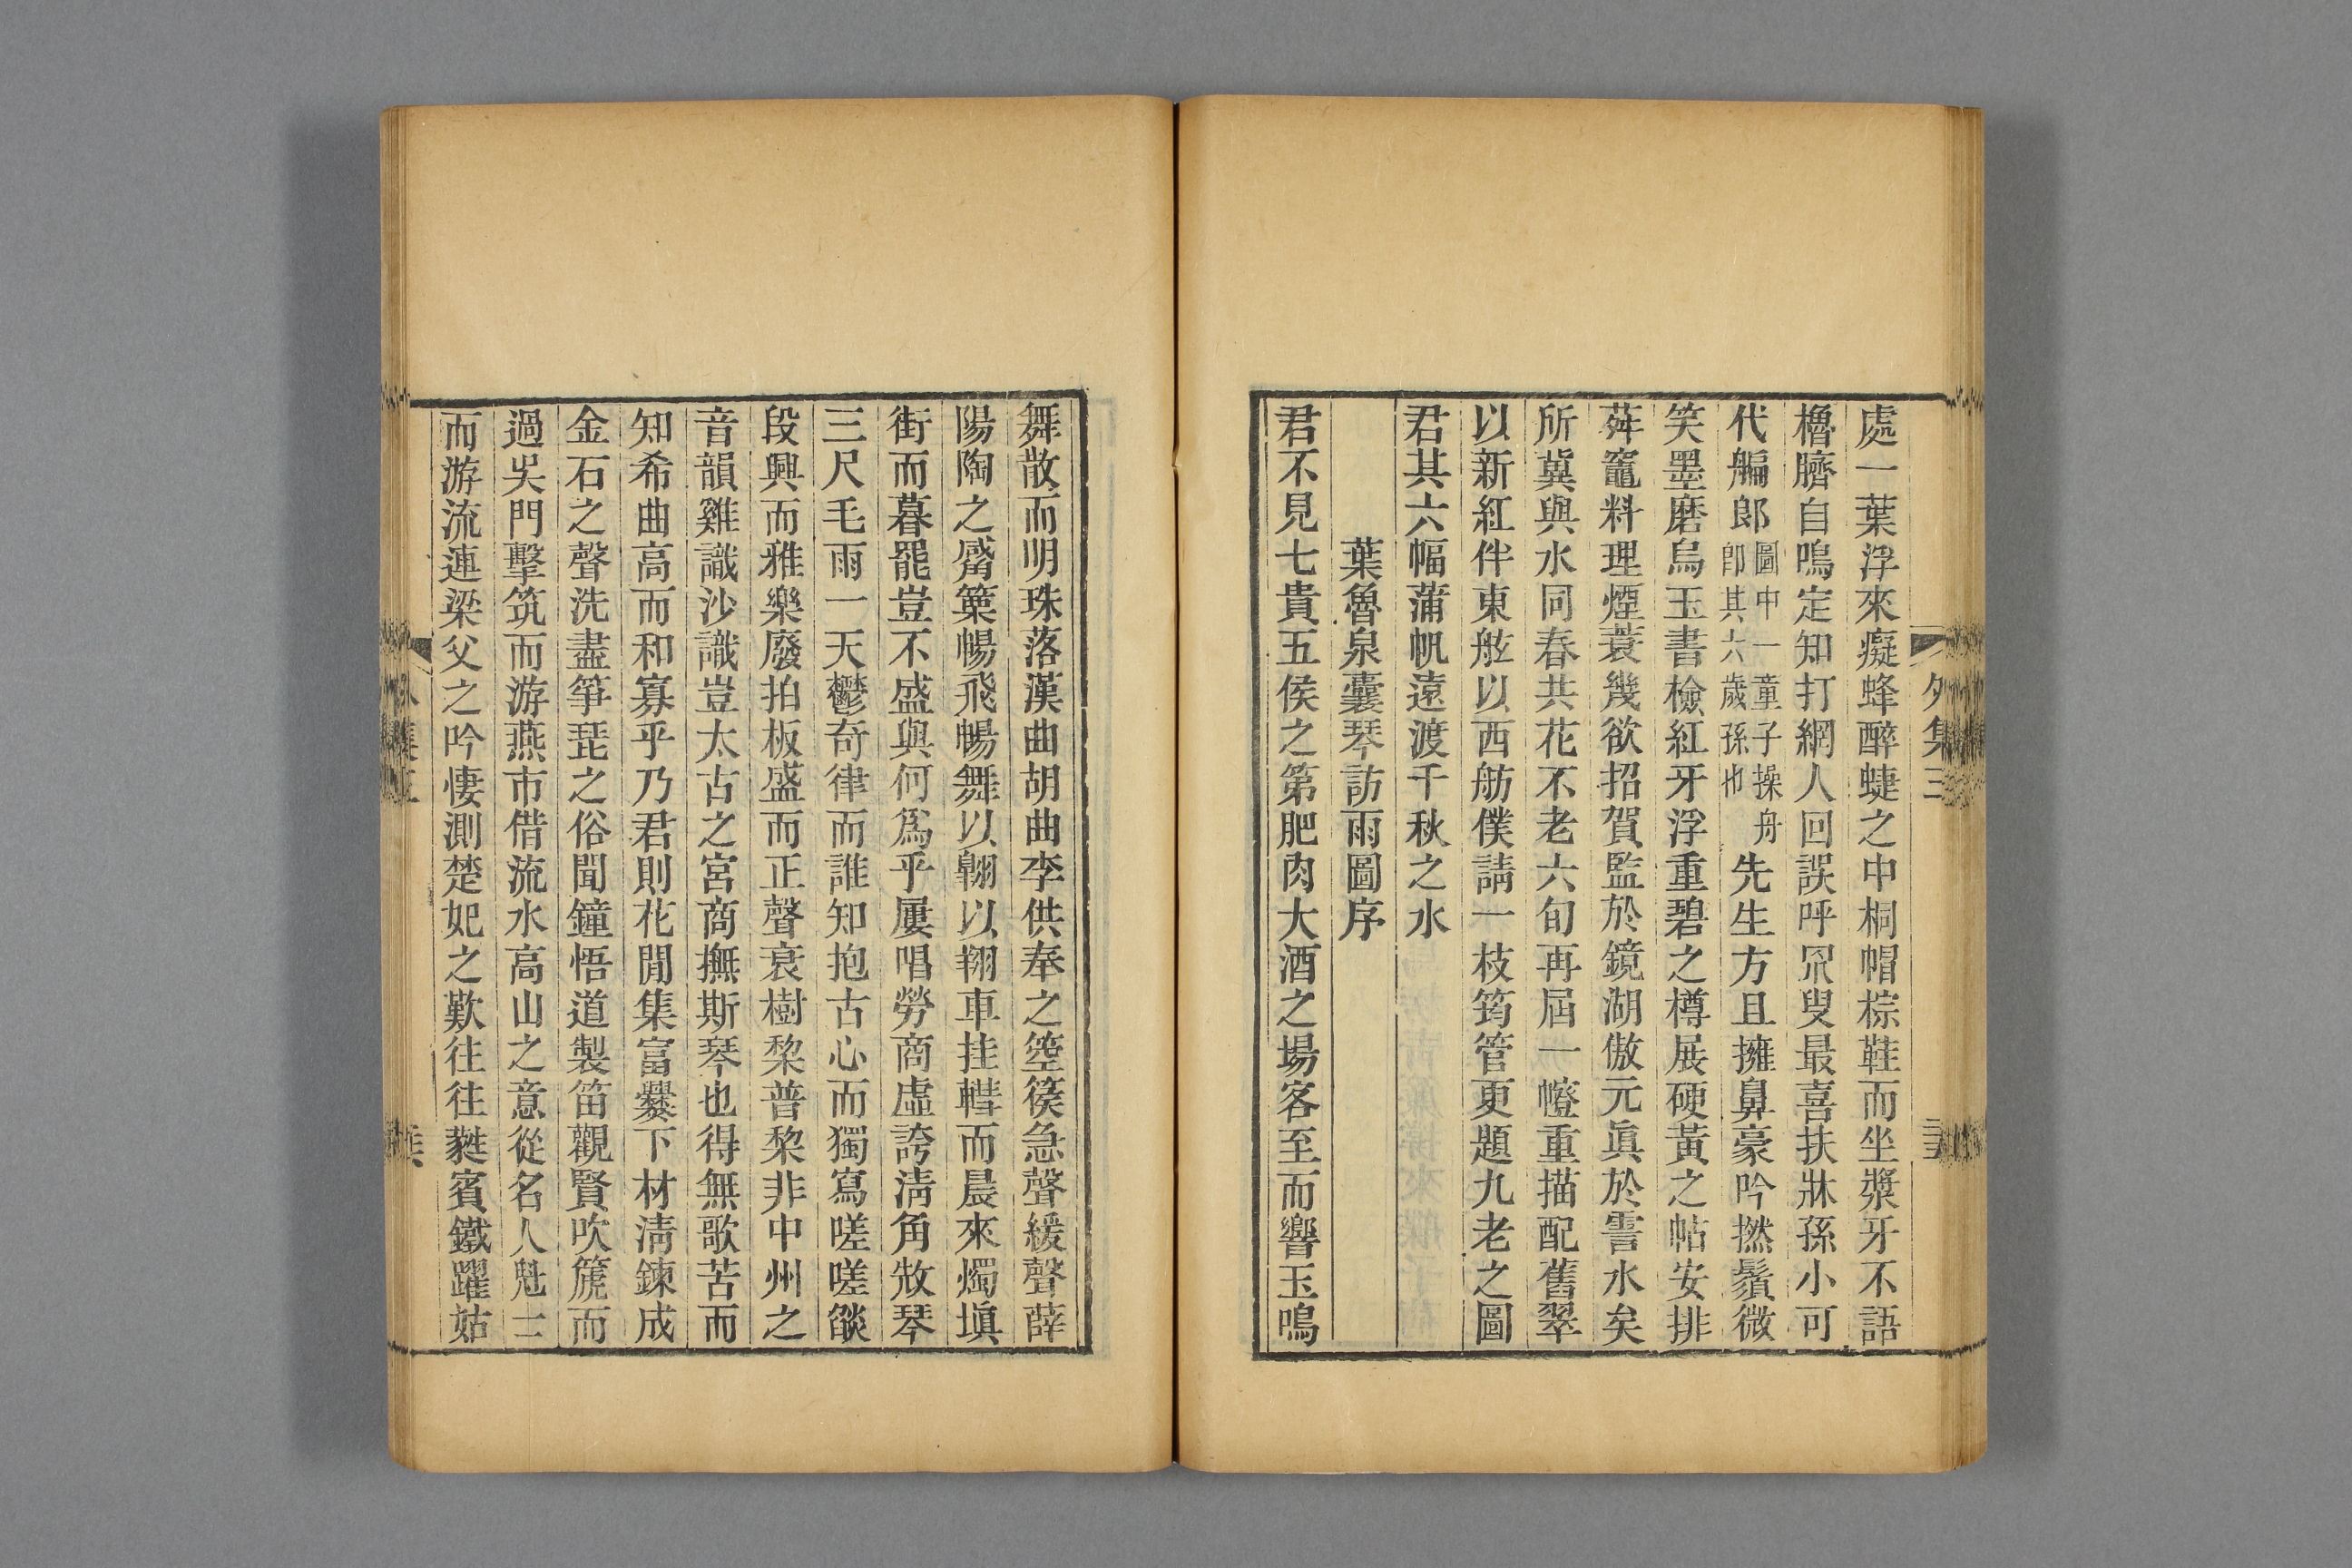 處一葉浮來癡蜂醉蜨之中桐帽棕鞋而坐槳牙不語
櫓臍自鳴定知打網人回誤呼罛叟最喜扶牀孫小可
代艑郎圖中一童子操舟卽其六歲孫也先生方且擁鼻豪吟撚鬚微
笑墨磨烏玉書檢紅牙浮重碧之樽展硬黃之帖安排
荈竈料理煙蓑幾欲招賀監於鏡湖傲元眞於霅水矣
所冀與水同春共花不老六旬再屆一幢重描配舊翠
以新紅伴東舷以西舫僕請一枝筠管更題九老之圖
君其六幅蒲帆遠渡千秋之水
葉魯泉囊琴訪雨圖序
君不見七貴五侯之第肥肉大酒之場客至而響玉鳴
外集三
舞散而明珠落漢曲胡曲李供奉之箜篌急聲緩聲薛
陽陶之觱篥暢飛暢舞以翺以翔車挂轊而晨來燭塡
街而暮罷豈不盛與何爲乎屢唱勞商虛誇淸角攽琴
三尺毛雨一天鬱奇律而誰知抱古心而獨寫嗟嗟燄
段興而雅樂廢拍板盛而正聲衰樹棃普棃非中州之
音韻雞識沙識豈太古之宮商撫斯琴也得無歌苦而
知希曲高而和寡乎乃君則花閒集富爨下材淸鍊成
金石之聲洗盡箏琵之俗聞鐘悟道製笛觀賢吹篪而
過吳門擊筑而游燕市借流水高山之意從名人魁士
而游流連梁父之吟悽測楚妃之歎往往蕤賓鐵躍姑